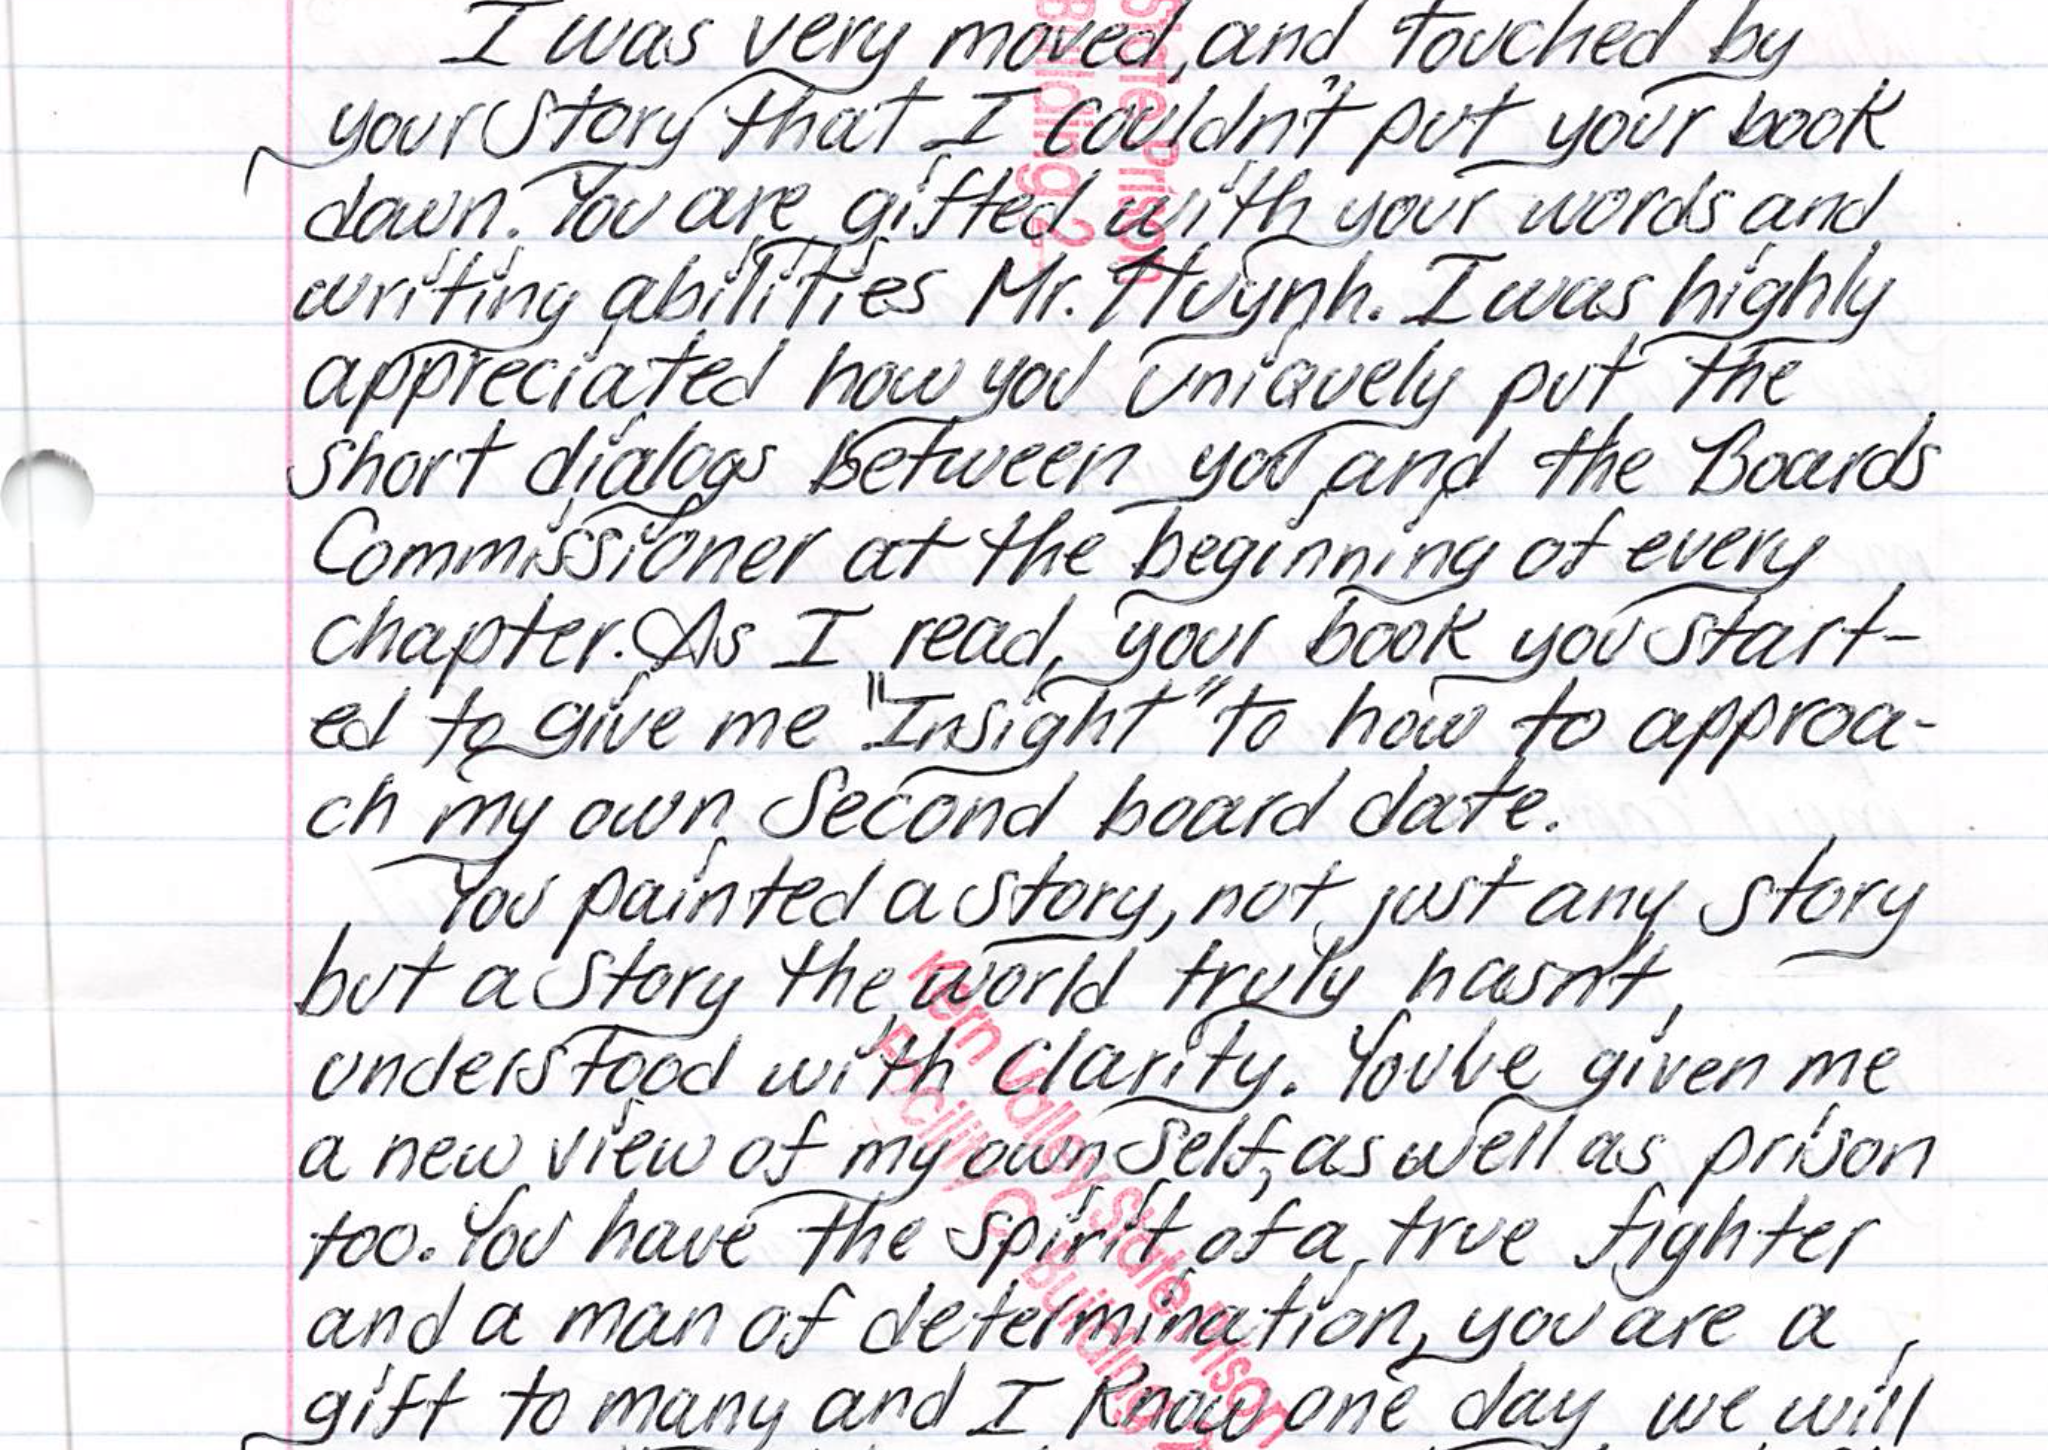 I was very moved, and touched by
your story that I couldn't put your book
down. You are gifted with your words and
writing abilities Mr. Huynh. I was highly
appreciated how you uniquely put the
short dialogs between you and the Boards
Commissioner at the beginning of every
chapter. As I read, your book you start-
ed to give me "Insight" to how to approa-
ch my own second board date.
You painted a story, not just any story
but a story the world truly hasn't
understood with clarity. You've given me
a new view of my own self, as well as prison
too. You have the spirit of a true fighter
and a man of determination, you are a
gift to many and I know one day we will
State Prison
Building 2
Kern Valley State Prison
Facility C Building